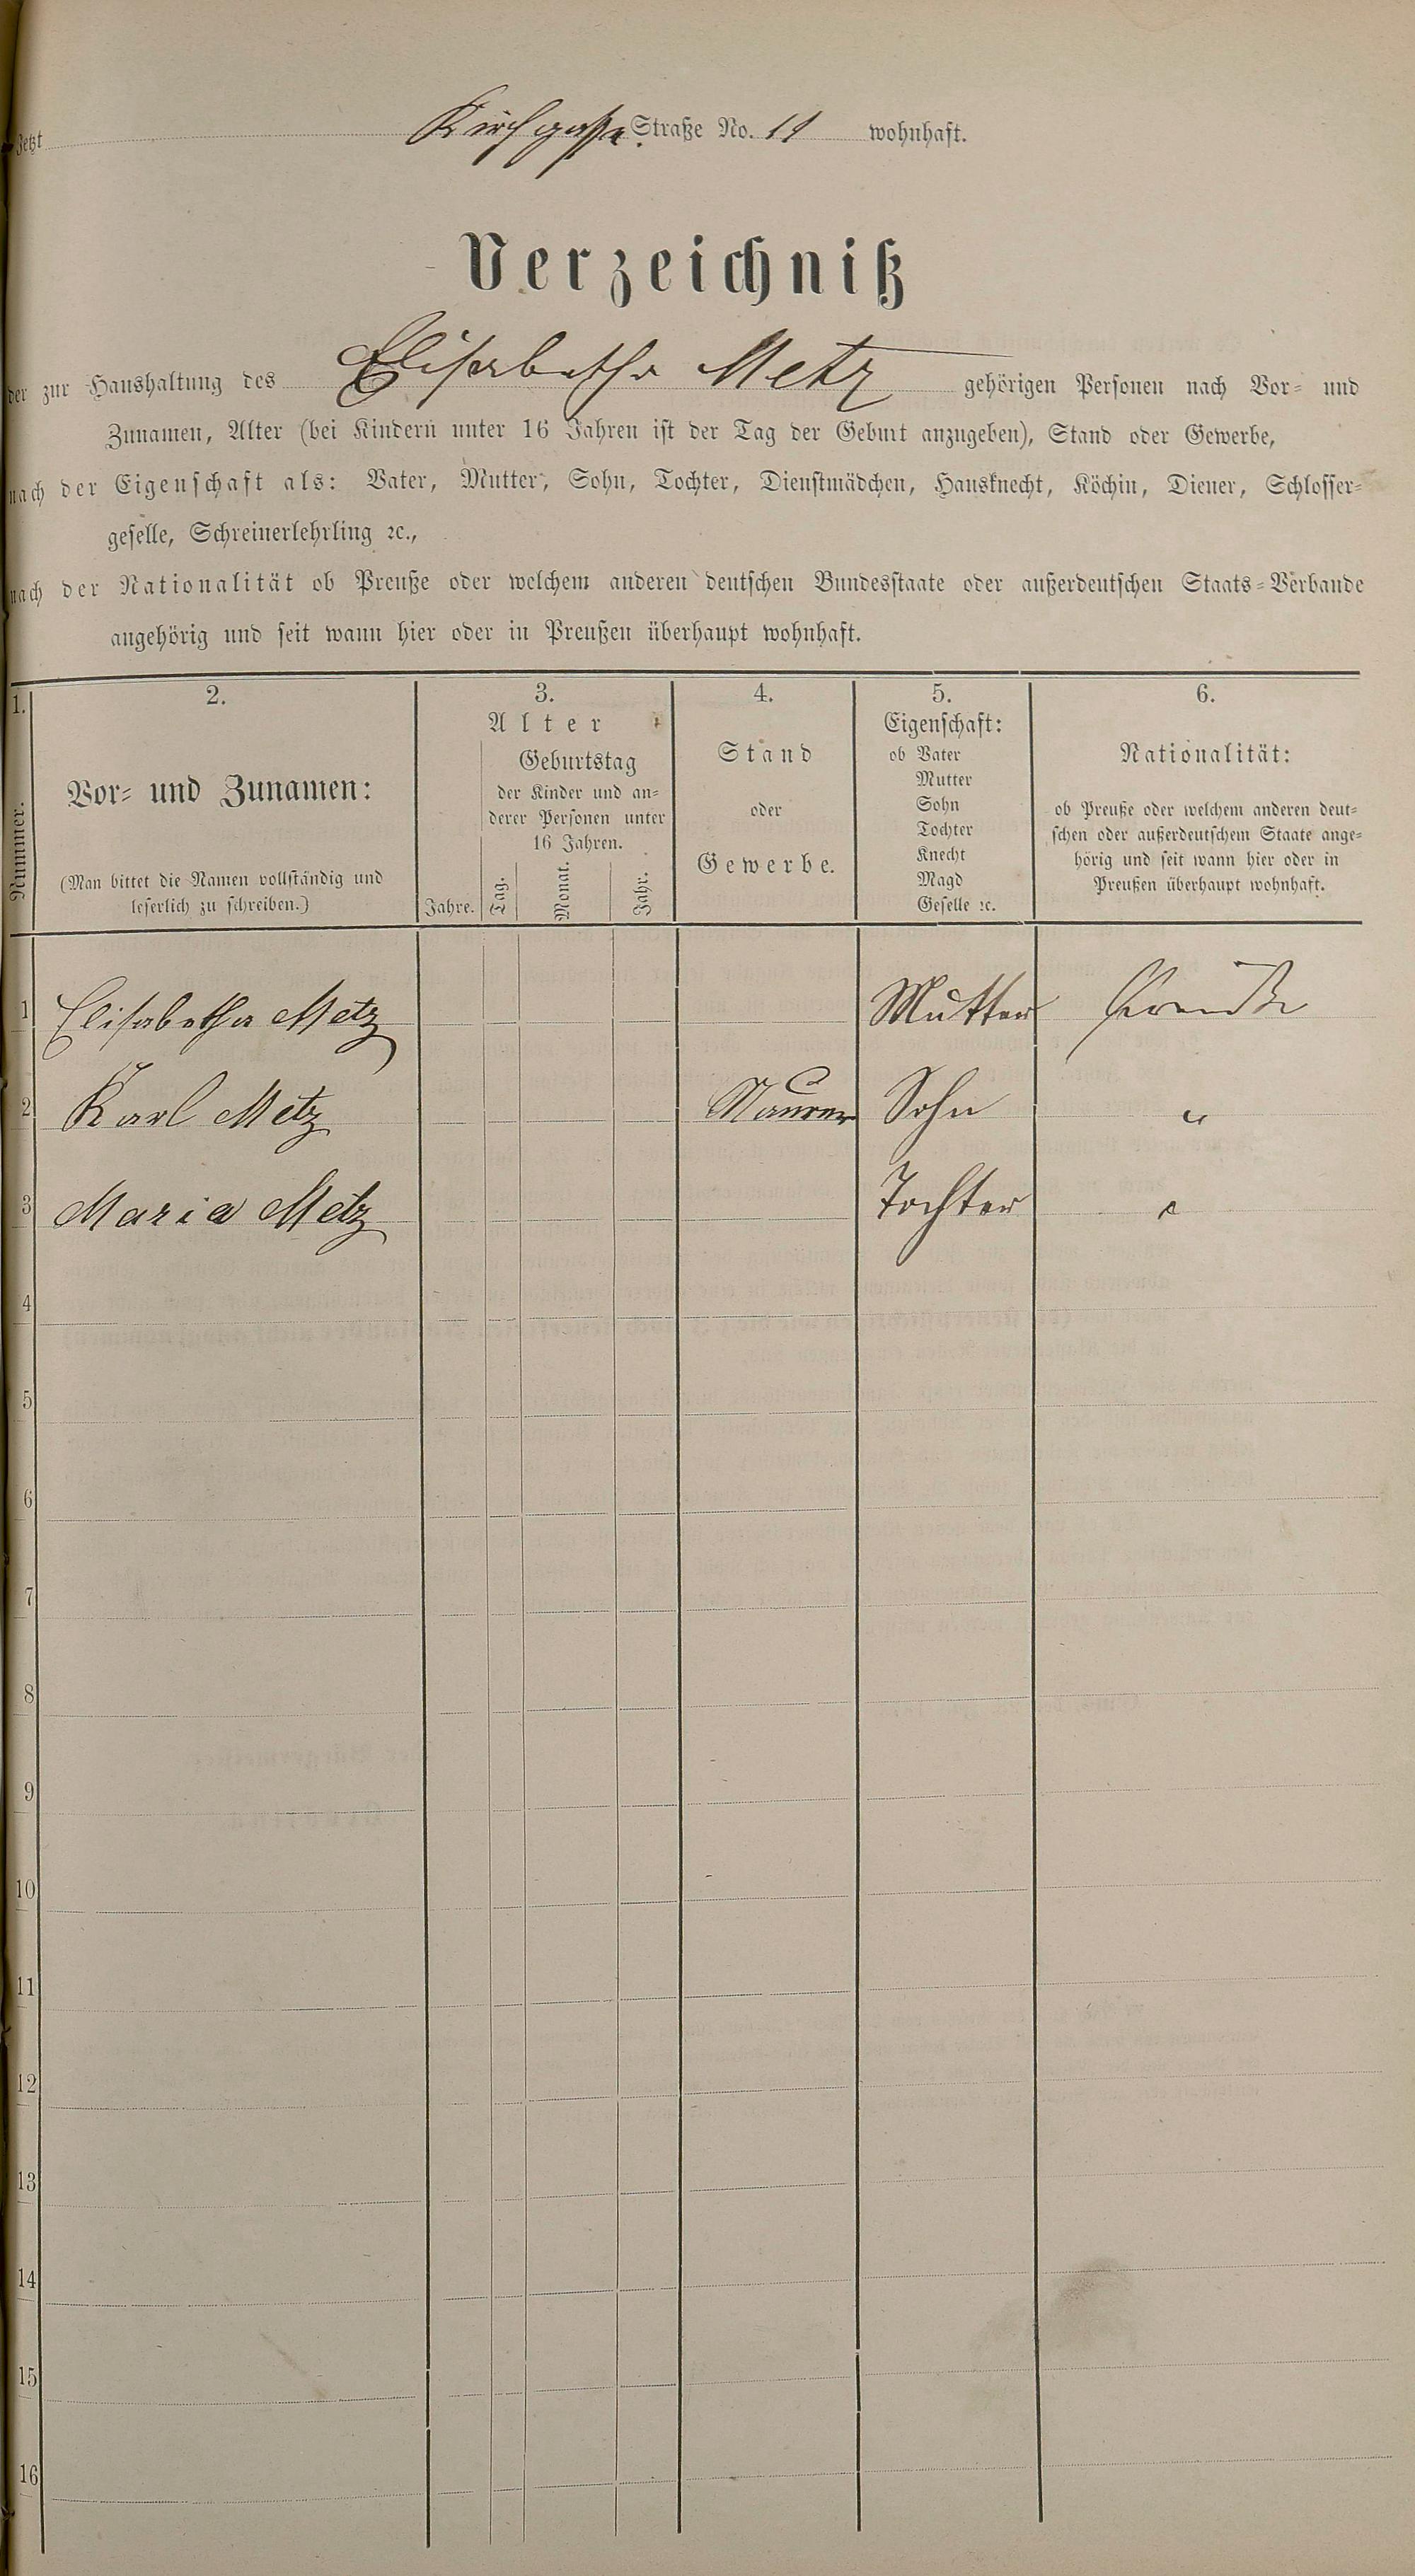 Jetzt Kirchgasse Straße No. 11 wohnhaft.
Verzeichniß
der zur Haushaltung des Elisabetha Metz gehörigen Personen nach Vor- und
Zunamen, Alter (bei Kindern unter 16 Jahren ist der Tag der Geburt anzugeben), Stand oder Gewerbe,
nach der Eigenschaft als: Vater, Mutter, Sohn, Tochter, Dienstmädchen, Hausknecht, Köchin, Diener, Schlosser-
geselle, Schreinerlehrling ꝛc.,
nach der Nationalität ob Preuße oder welchem anderen deutschen Bundesstaate oder außerdeutschen Staats-Verbande
angehörig und seit wann hier oder in Preußen überhaupt wohnhaft.
1.
Nummer.
2.
Vor- und Zunamen:
(Man bittet die Namen vollständig und
leserlich zu schreiben.)
3.
Alter
Geburtstag
der Kinder und an-
derer Personen unter
16 Jahren.
Jahre. Tag. Monat. Jahr.
4.
Stand
oder
Gewerbe.
5.
Eigenschaft:
ob Vater
Mutter
Sohn
Tochter
Knecht
Magd
Geselle ꝛc.
6.
Nationalität:
ob Preuße oder welchem anderen deut-
schen oder außerdeutschem Staate ange-
hörig und seit wann hier oder in
Preußen überhaupt wohnhaft.
1 Elisabetha Metz Mutter Preuße
2 Karl Metz Maurer Sohn "
3 Maria Metz Tochter "
4
5
6
7
8
9
10
11
12
13
14
15
16